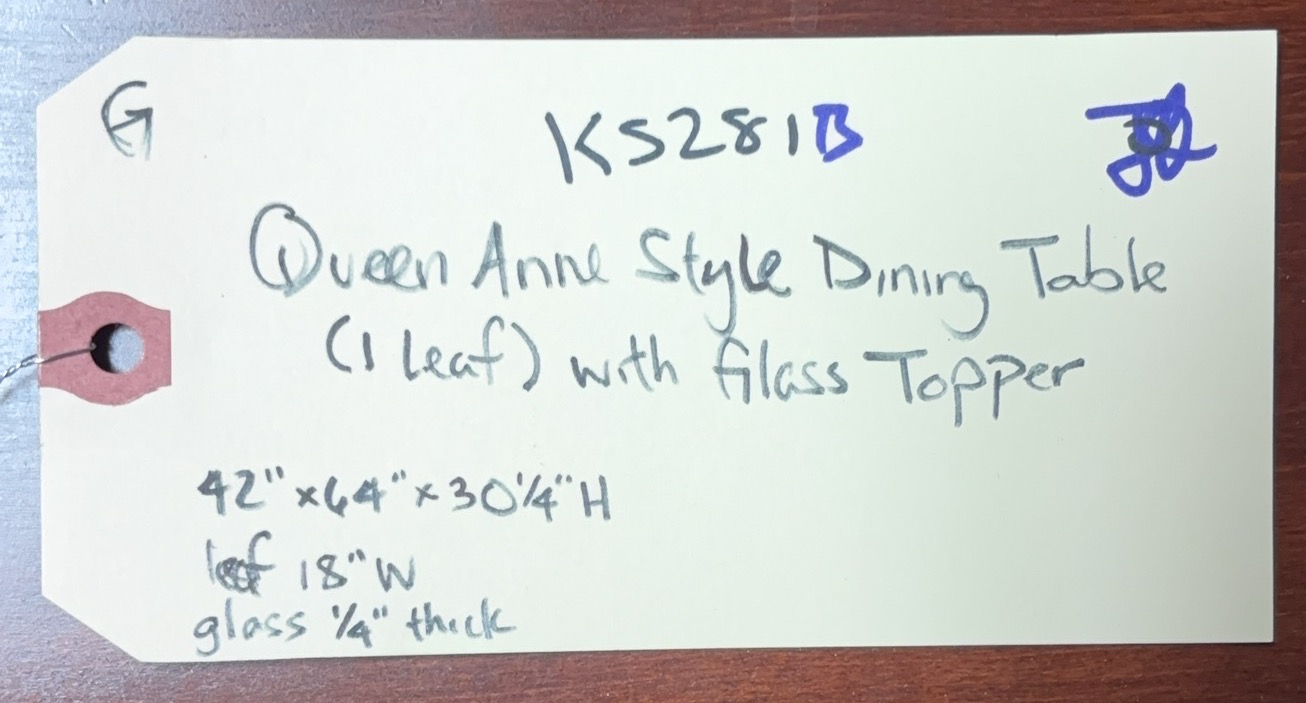 G
KS281B
Queen Anne Style Dining Table
(1 Leaf) with Glass Topper
42" x 64" x 30 1/4" H
leaf 18" W
glass 1/4" thick